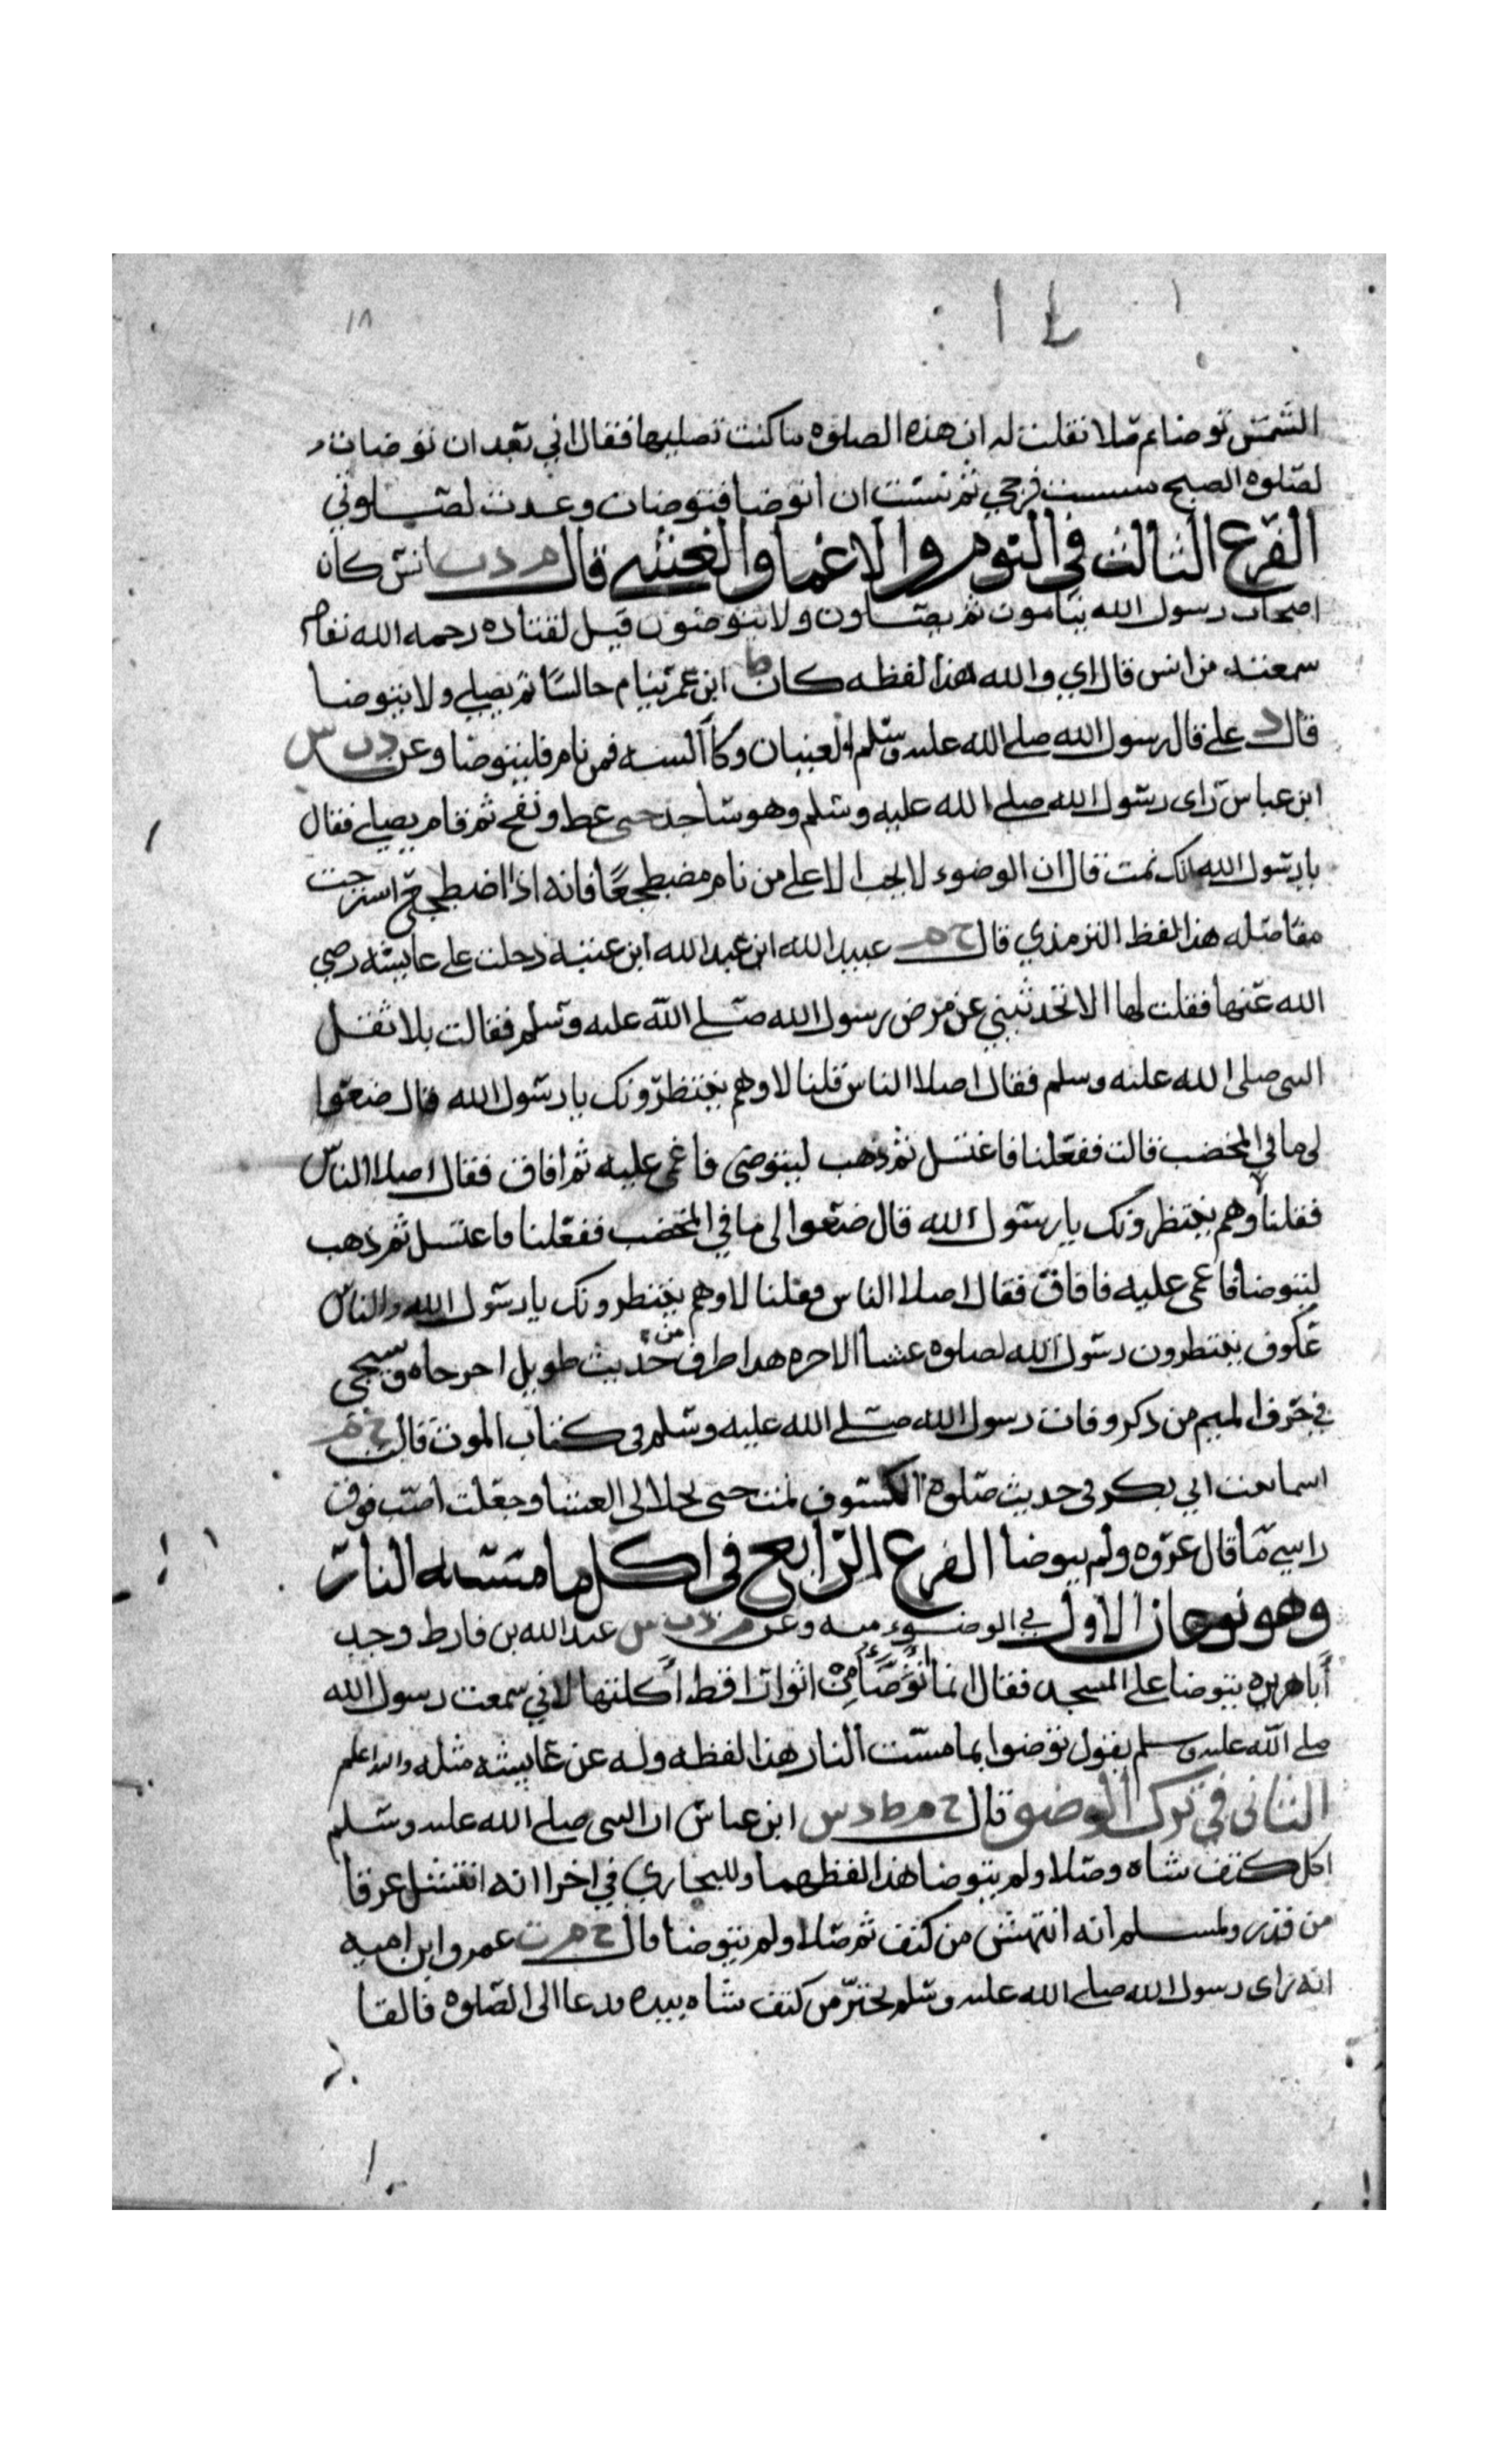 ١٨
الشمس توضا ثم صلا فقلت له ان هذه الصلوه ما كنت تصليها فقال اني بعد ان توضات
لصلوه الصبح مسست فرجي ثم نسيت ان اتوضا فتوضات وعدت لصلوتي
الفرع الثالث في النوم والاغما والغشيه قال م د ت انس كان
اصحاب رسول الله ينامون ثم يصلون ولا يتوضون قيل لقتاده رحمه الله تعا
سمعته من انس قال اي والله هذا لفظه كان ط ابن عمر ينام جالسًا ثم يصلي ولا يتوضا
قال د علي قال رسول الله صلي الله عليه وسلم العينان وكآ السه فمن نام فليتوضا وعن د ت س
ابن عباس راى رسول الله صلي الله عليه وسلم وهو ساجد حتى غط ونفخ ثم قام يصلي فقال
يا رسول الله انك نمت قال ان الوضوء لا يجب الا علي من نام مضطجعًا فانه اذا اضطجع استرخت
مفاصله هذا لفظ الترمذي قال خ م عبيد الله ابن عبد الله ابن عتبه دخلت علي عايشه رضي
الله عنها فقلت لها الا تحدثيني عن مرض رسول الله صلي الله عليه وسلم فقالت بلا ثقل
النبى صلى الله عليه وسلم فقال اصلا الناس قلنا لا وهم ينتظرونك يا رسول الله قال ضعوا
لى ما في المخضب قالت ففعلنا فاغتسل ثم ذهب ليتوضى فاغمى عليه ثم افاق فقال اصلا الناس
فقلنا لا وهم ينتظرونك يا رسول الله قال ضعوا لى ما في المخضب ففعلنا فاغتسل ثم ذهب
ليتوضا فاغمى عليه فافاق فقال اصلا الناس فقلنا لا وهم ينتظرونك يا رسول الله والناس
عكوف ينتظرون رسول الله لصلوه عشا الاخره هذا طرف من حديث طويل اخرجاه وسيجى
في حرف الميم من ذكر وفات رسول الله صلي الله عليه وسلم في كتاب الموت قال خ م
اسما بنت ابي بكر في حديث صلوه الكسوف قمت حتى تجلانى الغشا وجعلت اصب فوق
راسي مآ قال عروه ولم يتوضا الفرع الرابع في اكل ما مسته النار
وهو نوعان الاول في الوضوء منه وعن م د ت س عبد الله بن قارط وجد
أبا هريره يتوضا علي المسجد فقال انما اتوضأ من اثوار اقط أكلتها لاني سمعت رسول الله
صلي الله عليه وسلم يقول توضوا بما مست النار هذا لفظه وله عن عايشه مثله والله اعلم
الثانى في ترك الوضو قال خ م ط د س ابن عباس ان النبى صلي الله عليه وسلم
اكل كتف شاه وصلا ولم يتوضا هذا لفظهما وللبخاري في اخرا انه انتشل عرقا
من قدر ولمسلم انه انتهش من كتف ثم صلا ولم يتوضا قال خ م ت عمرو ابن اميه
انه راى رسول الله صلي الله عليه وسلم يحتز من كتف شاه بيده فدعا الى الصلوه فالقا